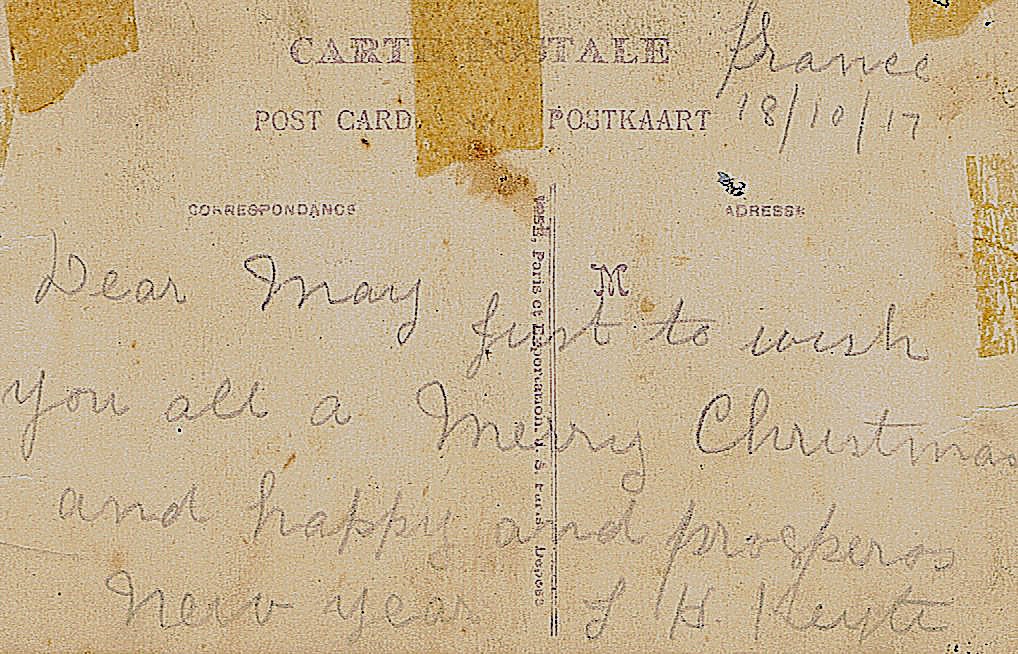 CARTE POSTALE
France
POST CARD POSTKAART
18/10/17
CORRESPONDANCE
ADRESSE
M
Dear May
just to wish
you all a Merry Christmas
and happy and prosperos
New year L H. Keyte
Paris et Exportation. Déposé